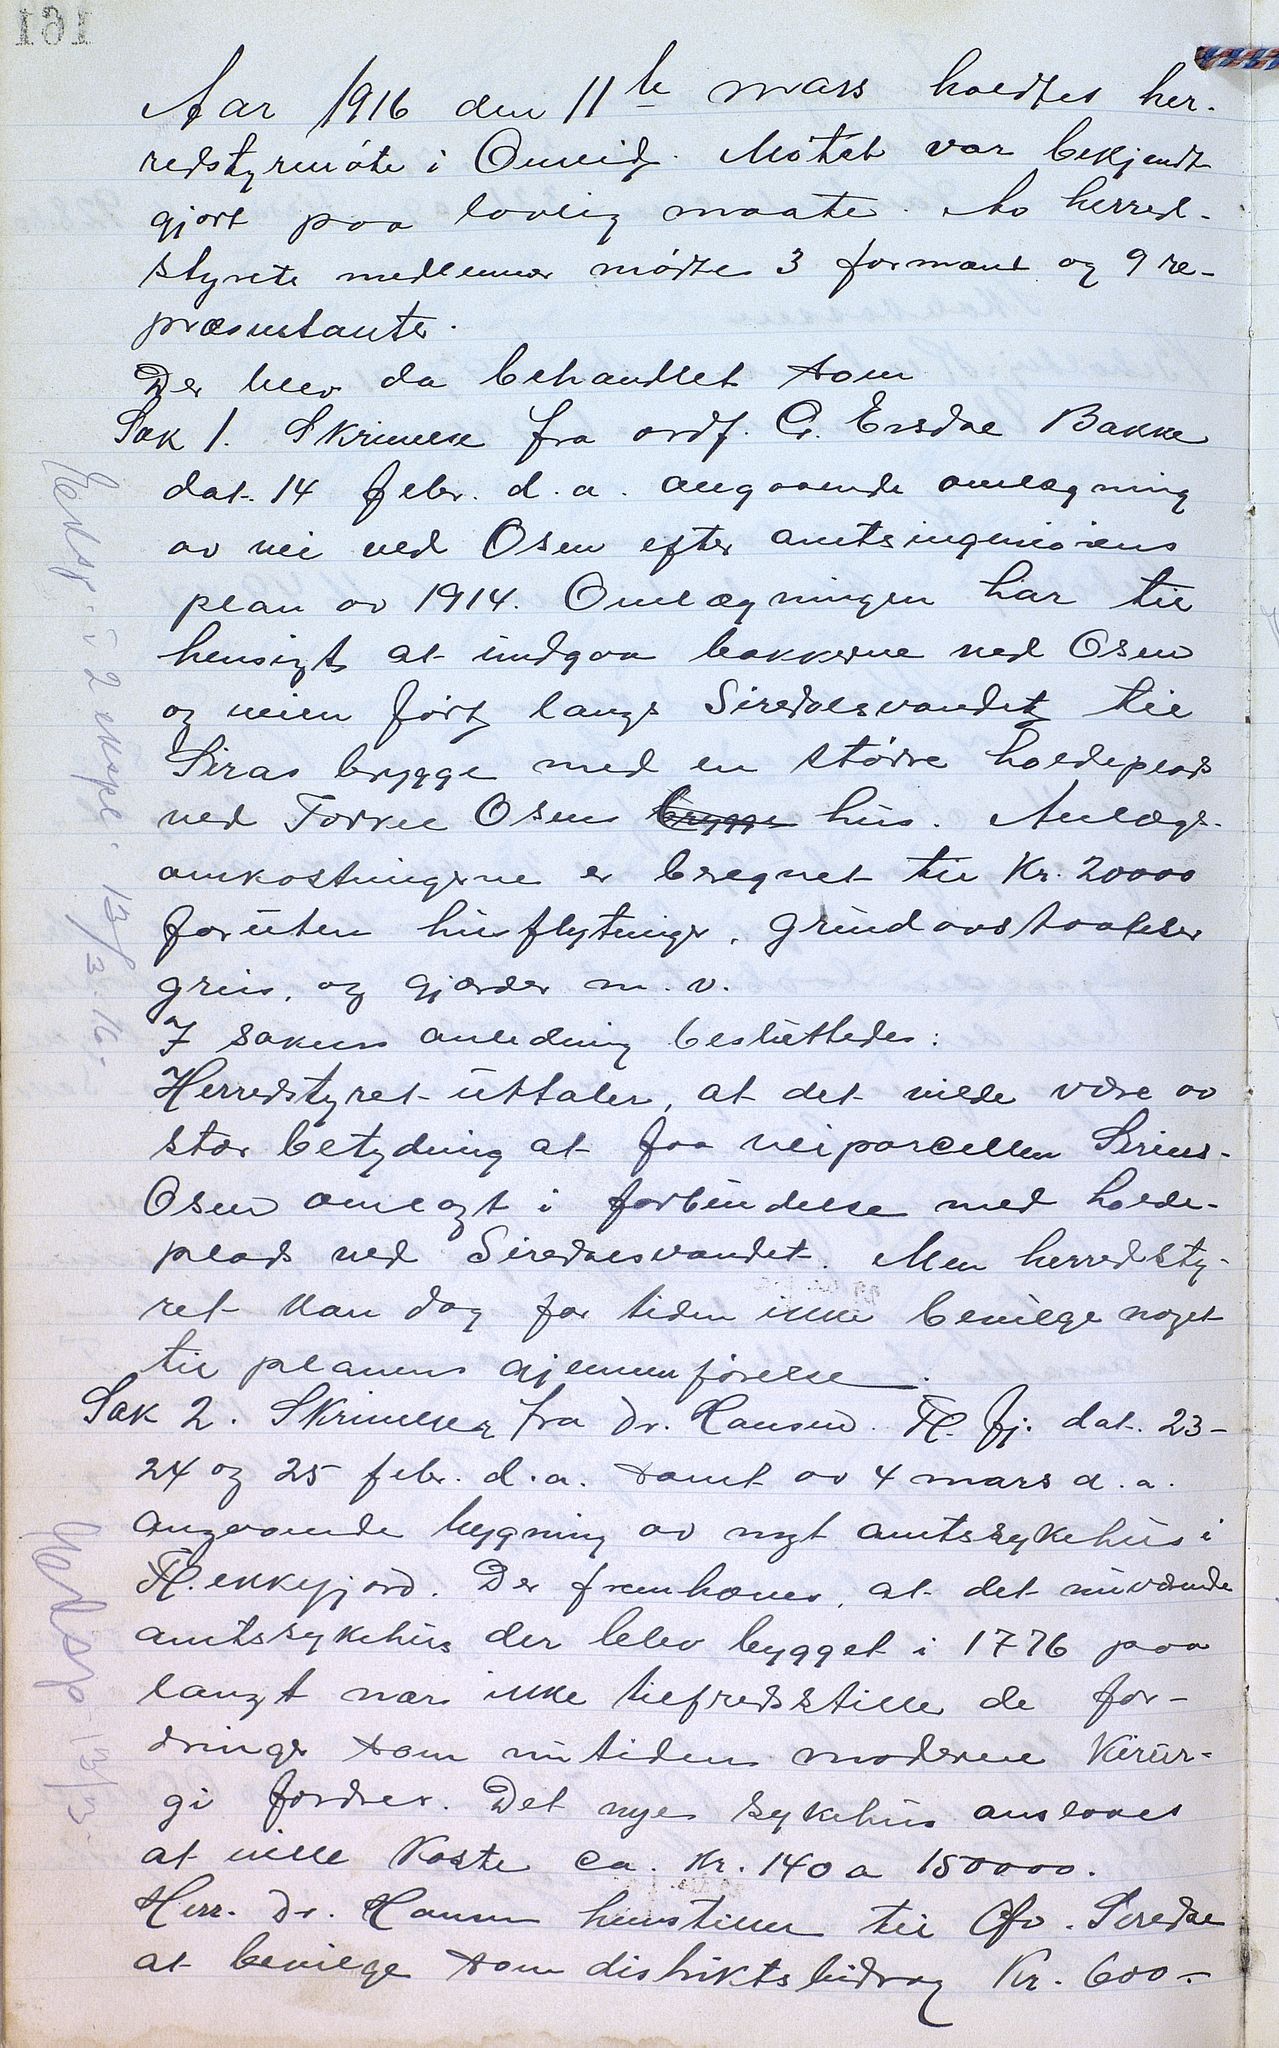 161
Aar 1916 den 11te mars holdtes her-
redstyremøte i Omlid. Møtet var bekjendt
gjort paa lovlig maate. Av herred-
styrets medlemmer mødte 3 formænd og 9 re-
præsentanter.
Der blev da behandlet som
Sak 1. Skrivelse fra ordf. C. Ersdal Bakke
dat. 14 febr. d.a. angaaende omlægning
av vei ved Osen efter amtsingeniørens
plan av 1914. Omlægningen har til
hensigt at undgaa bakkerne ved Osen
og veien ført langs Siredalsvandet til
Siras brygge med en større holdeplads
ved Torkel Osens brygge hus. Anlægs-
omkostningerne er beregnet til Kr. 20000
foruten husflytninger, grundavstaaelser
grus, og gjærder m.v.
I sakens anledning besluttedes:
Herredstyret uttaler, at det vilde være av
stor betydning at faa veiparcellen Sirnes-
Osen omlagt i forbindelse med holde-
plads ved Siredalsvandet. Men herredsty-
ret kan dog for tiden ikke bevilge noget
til planens gjennemførelse.
Sak 2. Skrivelser fra Dr. Hansen. Fl. fj. dat. 23-
24 og 25 febr. d.a. samt av 4 mars d.a.
angaaende bygning av nyt amtssykehus i
Flekkefjord. Der fremhæves, at det nuværende
amtssykehus der blev bygget i 1776 paa
langt nær ikke tilfredsstiller de for-
dringer som nutidens moderne Kirur-
gi fordrer. Det nye sykehus anslaaes
at ville koste ca. Kr. 140 a 150000.
Herr. Dr. Hansen henstiller til Øvr. Siredal
at bevilge som distriktsbidrag Kr. 600.-
Eksp. i 2 ekspl. 13/3.16.
Eksp. 13/3.